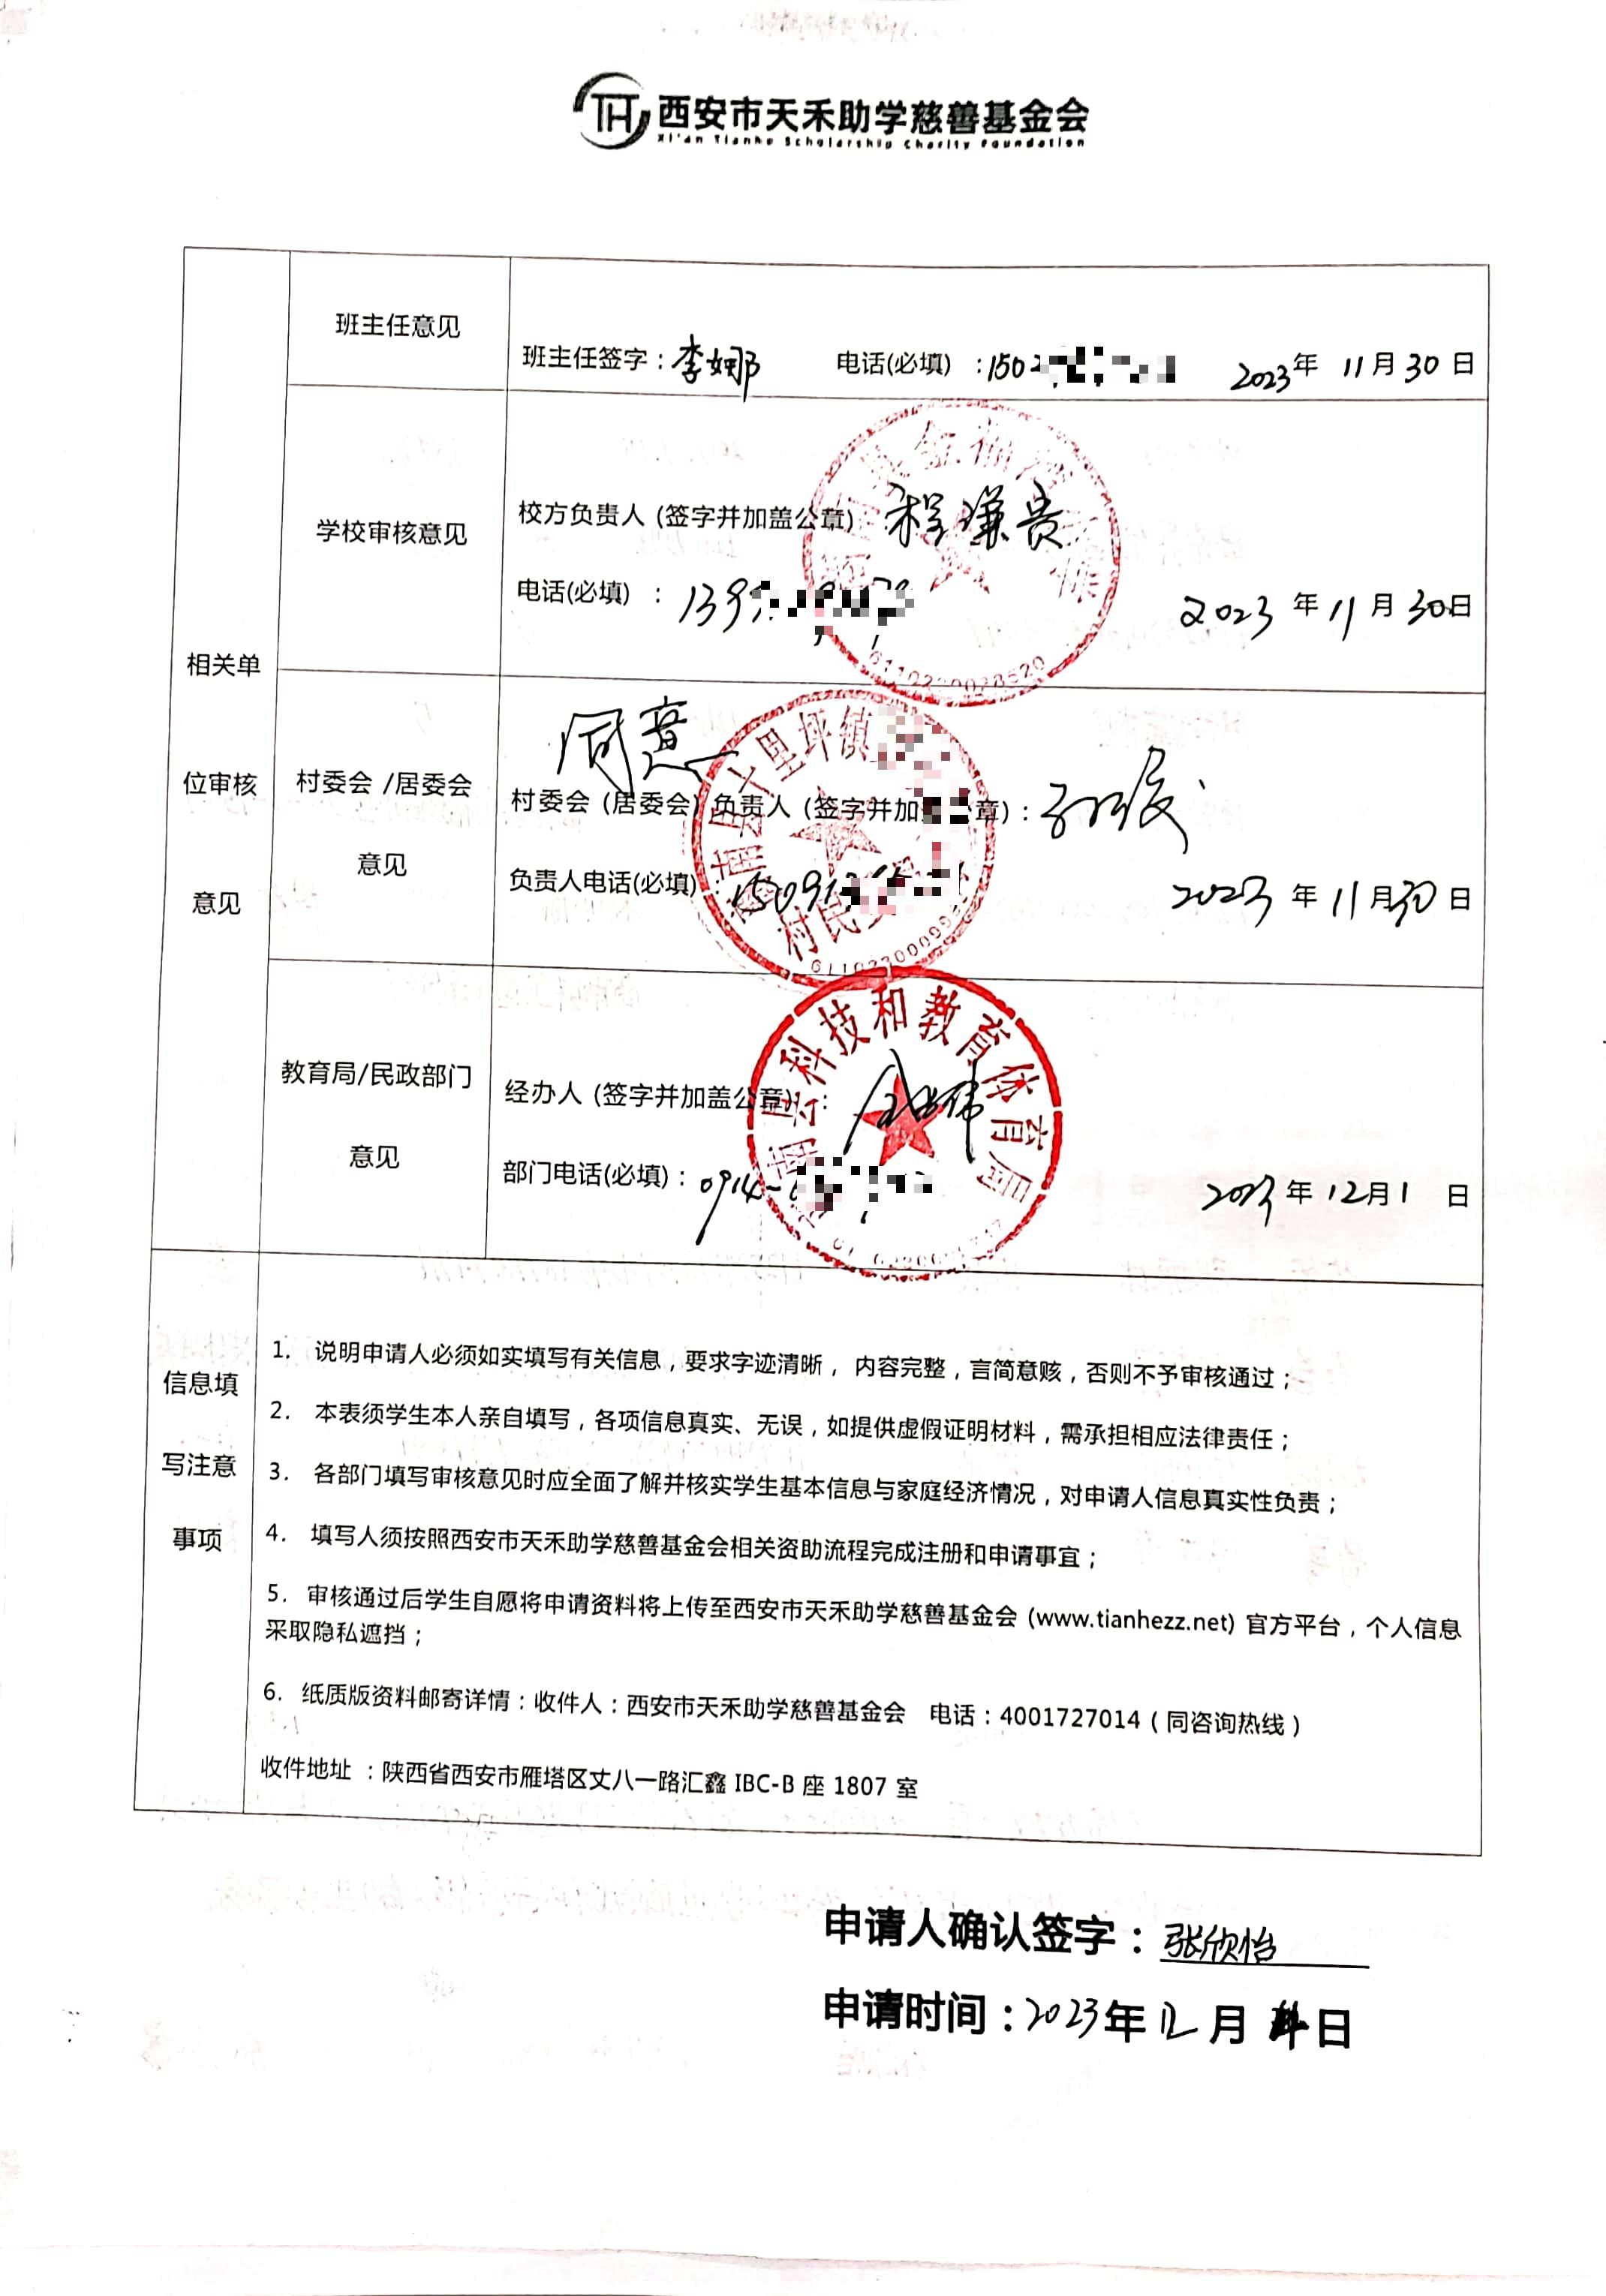 西安市天禾助学慈善基金会
Xi'an Tianhe Scholarship Charity Foundation
相关单
位审核
意见
班主任意见
班主任签字：李娜 电话(必填) ：150 2023年 11月30日
学校审核意见
校方负责人 (签字并加盖公章) 程谋贵
电话(必填) ： 139 2023年11月30日
村委会 /居委会
意见
同意
村委会 (居委会) 负责人 (签字并加 章)：
负责人电话(必填)：15091 2023年11月30日
南县十里坪镇
村民
教育局/民政部门
意见
经办人 (签字并加盖公章) ：
部门电话(必填)：0914- 2023年12月1 日
南县科技和教育体育局
信息填
写注意
事项
1. 说明申请人必须如实填写有关信息，要求字迹清晰， 内容完整，言简意赅，否则不予审核通过；
2. 本表须学生本人亲自填写，各项信息真实、无误，如提供虚假证明材料，需承担相应法律责任；
3. 各部门填写审核意见时应全面了解并核实学生基本信息与家庭经济情况，对申请人信息真实性负责；
4. 填写人须按照西安市天禾助学慈善基金会相关资助流程完成注册和申请事宜；
5. 审核通过后学生自愿将申请资料将上传至西安市天禾助学慈善基金会 (www.tianhezz.net) 官方平台，个人信息
采取隐私遮挡；
6. 纸质版资料邮寄详情：收件人：西安市天禾助学慈善基金会 电话：4001727014（同咨询热线）
收件地址 ：陕西省西安市雁塔区丈八一路汇鑫 IBC-B 座 1807 室
申请人确认签字：张欣怡
申请时间：2023年12月 日